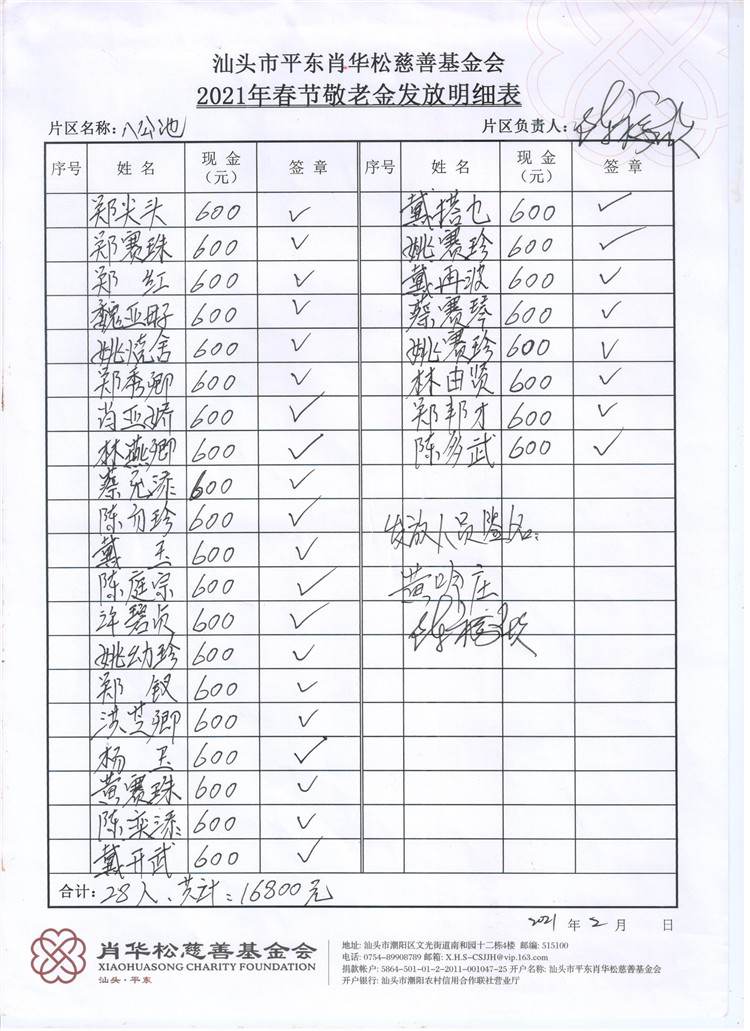 汕头市平东肖华松慈善基金会
2021年春节敬老金发放明细表
片区名称：八公池 片区负责人：
序号 姓名 现金（元） 签章 序号 姓名 现金（元） 签章
郑尖头 600 ✓ 戴搭七 600 ✓
郑赛珠 600 ✓ 姚赛珍 600 ✓
郑 红 600 ✓ 戴再波 600 ✓
魏亚 600 ✓ 蔡赛琴 600 ✓
姚 舍 600 ✓ 姚赛珍 600 ✓
郑秀卿 600 ✓ 林由贤 600 ✓
肖亚娇 600 ✓ 郑邦才 600 ✓
林燕卿 600 ✓ 陈多武 600 ✓
蔡 添 600 ✓
陈 珍 600 ✓ 发放人员签名：
戴 玉 600 ✓
陈庭宗 600 ✓ 黄 庄
许碧贞 600 ✓
姚幼珍 600 ✓
郑 钗 600 ✓
洪芝卿 600 ✓
杨 玉 600 ✓
黄赛珠 600 ✓
陈奕添 600 ✓
戴开武 600 ✓
合计：28人、共计：16800元
2021 年 2 月 日
肖华松慈善基金会
XIAOHUASONG CHARITY FOUNDATION
汕头·平东
地址: 汕头市潮阳区文光街道南和园十二栋4楼 邮编: 515100
电话: 0754-89908789 邮箱: X.H.S-CSJJH@vip.163.com
捐款帐户: 5864-501-01-2-2011-001047-25 开户名称: 汕头市平东肖华松慈善基金会
开户银行: 汕头市潮阳农村信用合作联社营业厅